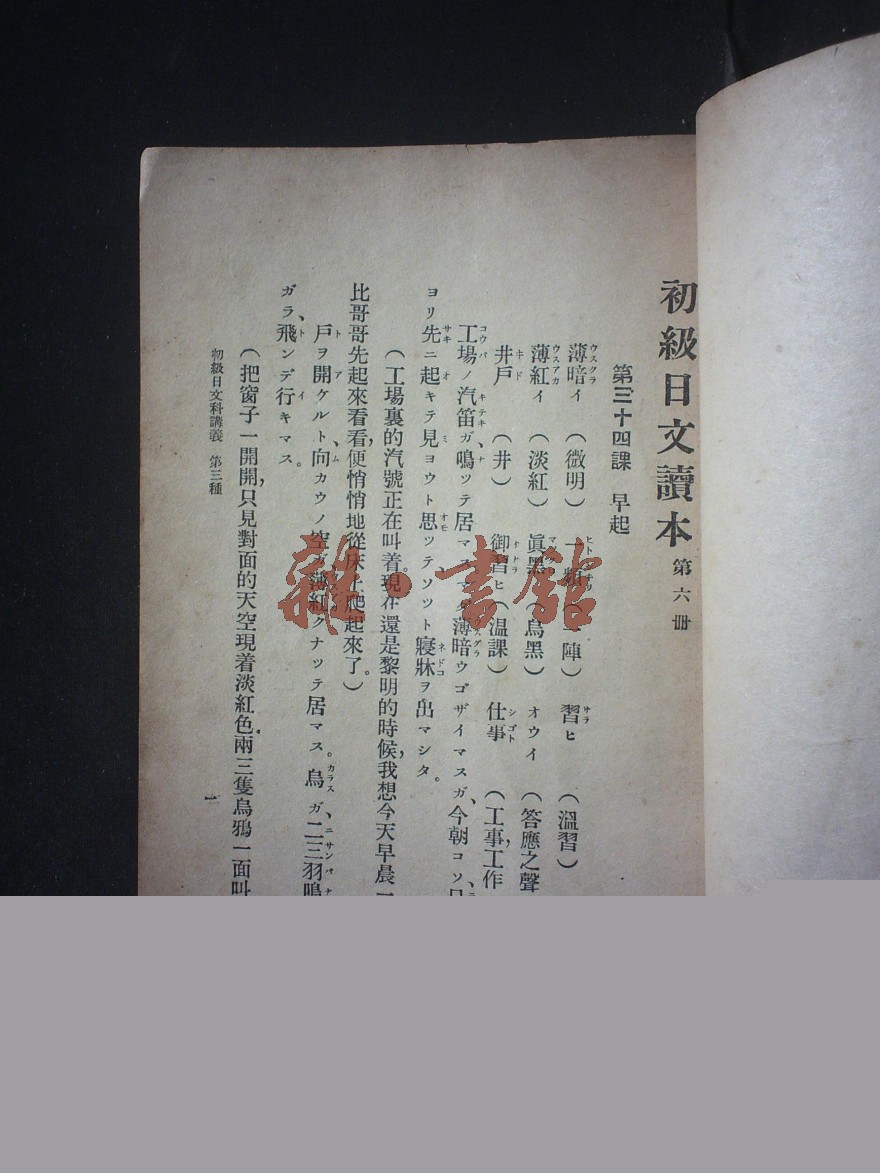 初級日文讀本 第六册
第三十四課 早起
薄暗イ（微明） 一頻（一陣） 習ヒ（溫習）
薄紅イ（淡紅） 眞黑（烏黑） オウイ（答應之聲
井戶（井） 御習ヒ（溫課） 仕事（工事,工作
工場ノ汽笛ガ、鳴ツテ居マス。マダ薄暗ウゴザイマスガ、今朝コソ
ヨリ先ニ起キテ見ヨウト思ツテソツト寢牀ヲ出マシタ。
（工場裏的汽號正在叫着。現在還是黎明的時候,我想今天早晨一
比哥哥先起來看看,便悄悄地從床上爬起來了。）
戶ヲ開ケルト、向カウノ空ガ薄紅クナツテ居マス。烏ガ、二三羽鳴
ガラ、飛ンデ行キマス。
（把窗子一開開,只見對面的天空現着淡紅色,兩三隻烏鴉一面叫
初級日文科講義 第三種
一
雜·書館